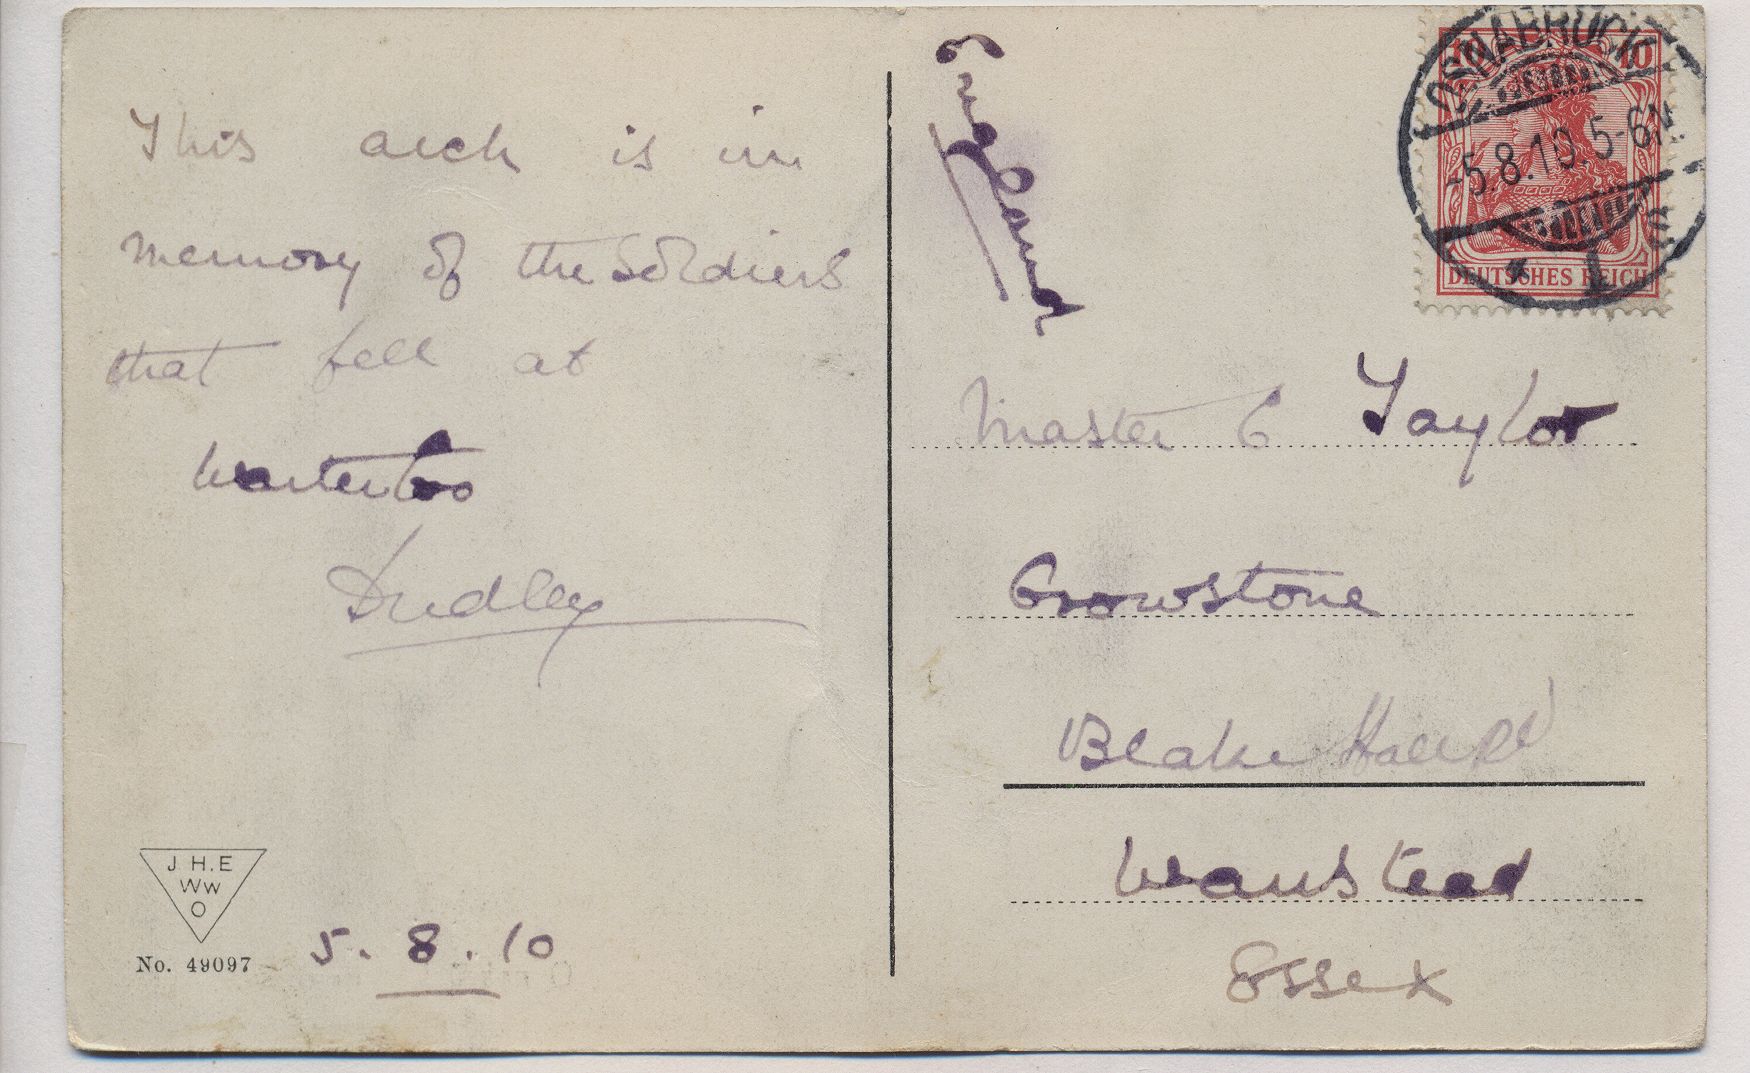 This arch is in
memory of the Soldiers
that fell at
Waterloo
Dudley
5.8.10
J.H.E
Ww
O
No. 49097
England
Master C Taylor
Crowstone
Blake Hall Rd
Wanstead
Essex
OSNABRÜCK
-5.8.10.5-6N.
10
DEUTSCHES REICH